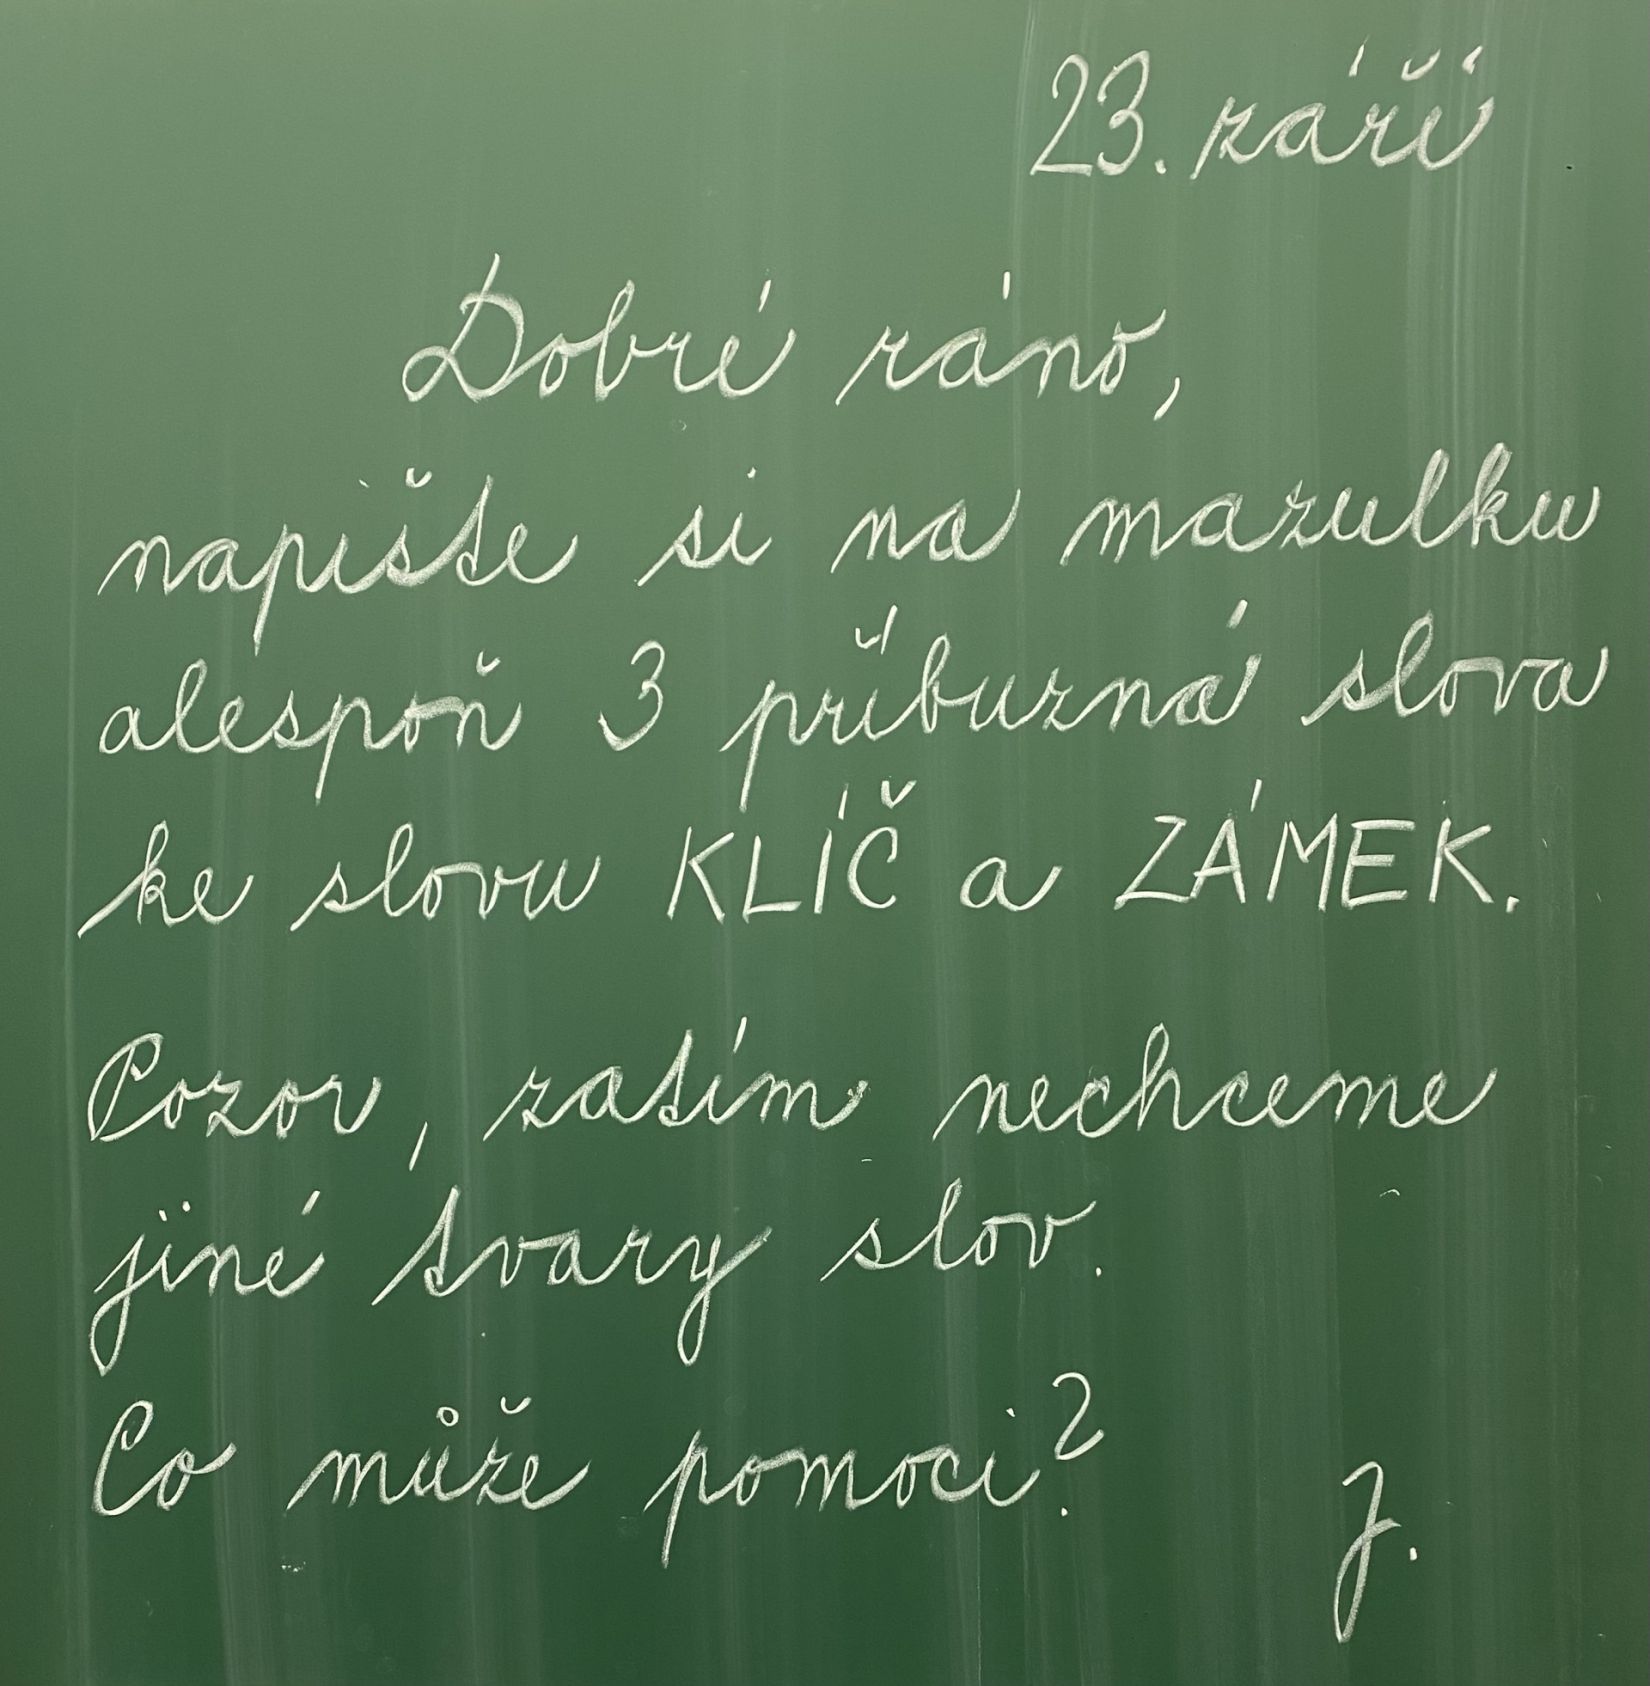 23. září
Dobré ráno,
napište si na mazulku
alespoň 3 příbuzná slova
ke slovu KLÍČ a ZÁMEK.
Pozor, zatím nechceme
jiné tvary slov.
Co může pomoci?
J.